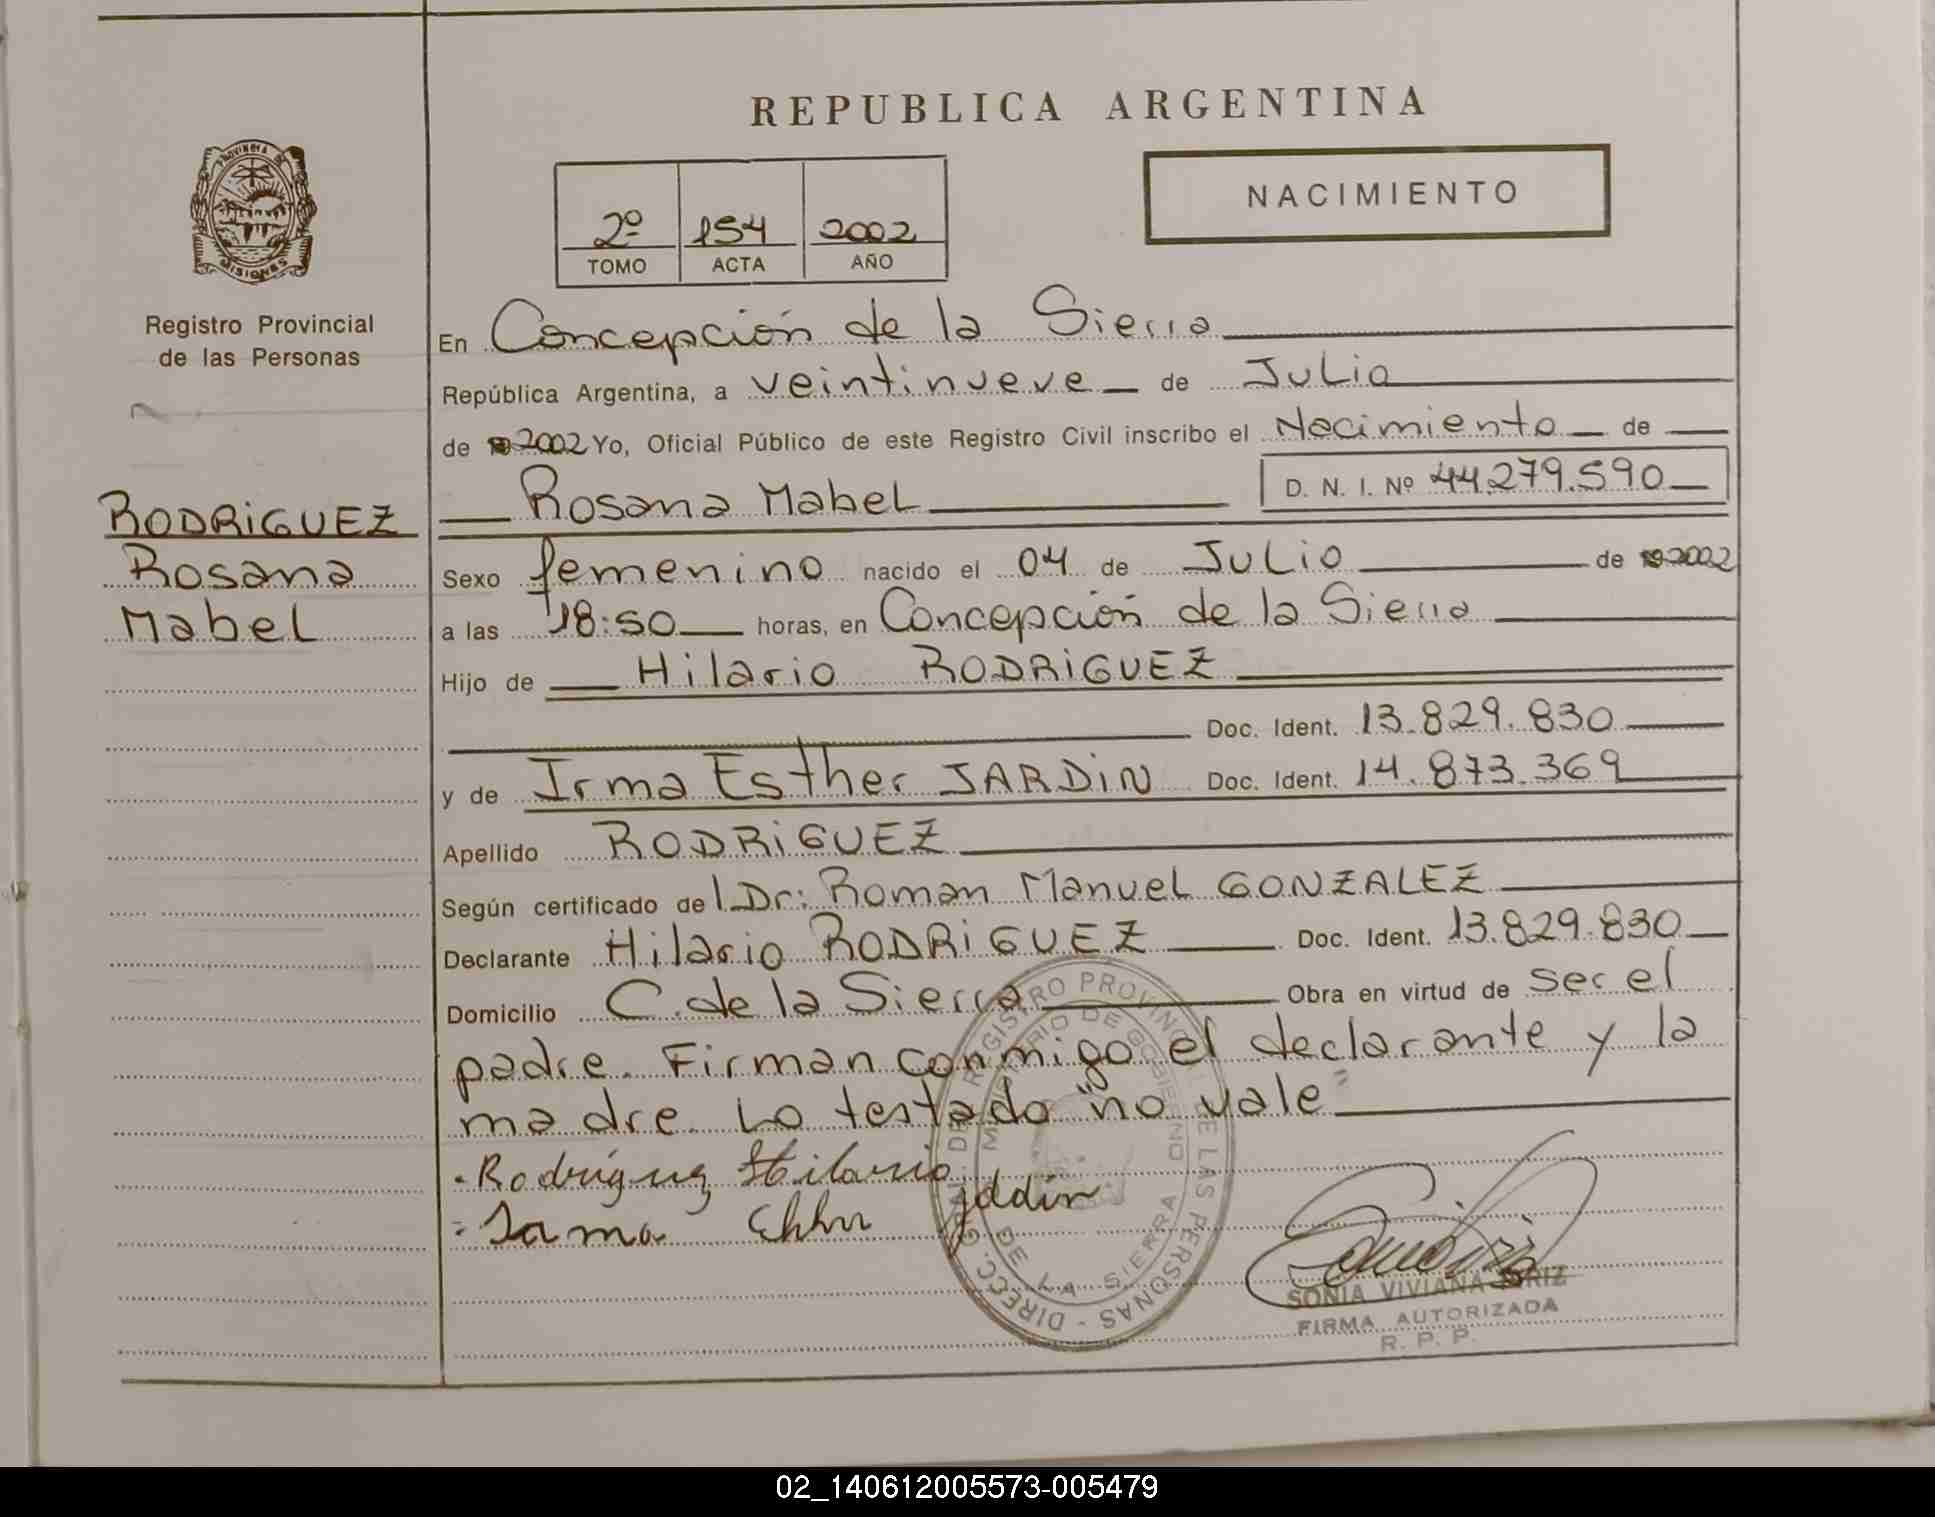 REPUBLICA ARGENTINA
PROVINCIA DE
MISIONES
Registro Provincial
de las Personas
2º 154 2002
TOMO ACTA AÑO
NACIMIENTO
RODRiGUEZ
Rosana
Mabel
En Concepción de la Sierra
República Argentina, a veintinueve de Julio
de 2002 Yo, Oficial Público de este Registro Civil inscribo el Nacimiento de
Rosana Mabel D. N. I. Nº 44.279.590
Sexo femenino nacido el 04 de Julio de 2002
a las 18:50 horas, en Concepción de la Sierra
Hijo de Hilario RODRiGUEZ
Doc. Ident. 13.829.830
y de Irma Esther JARDiN Doc. Ident. 14.873.369
Apellido RODRiGUEZ
Según certificado del Dr: Roman Manuel GONZALEZ
Declarante Hilario RODRiGUEZ Doc. Ident. 13.829.830
Domicilio C. de la Sierra Obra en virtud de ser el
padre. Firman conmigo el declarante y la
madre. Lo testado "no vale"
Rodriguez Hilario
DIRECC. GRAL. DEL REGISTRO PROVINCIAL DE LAS PERSONAS
MINISTERIO DE GOBIERNO
DE LA SIERRA
SONIA VIVIANA
FIRMA AUTORIZADA
R. P. P.
02_140612005573-005479